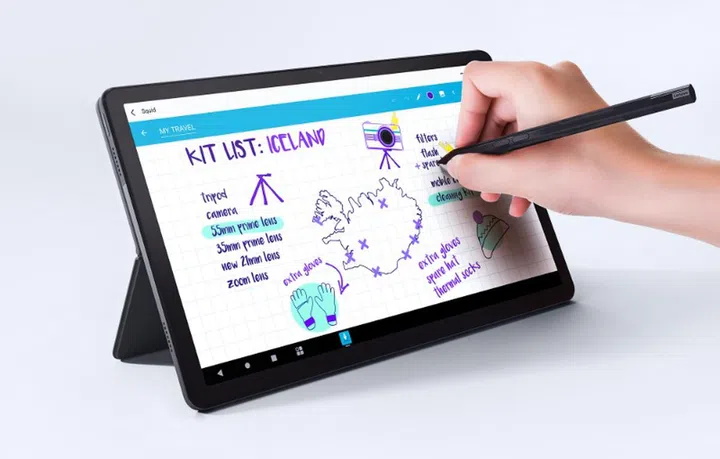 Squid
MY TRAVEL
KIT LIST: ICELAND
tripod
camera
55mm prime lens
35mm prime lens
new 21mm lens
zoom lens
extra gloves
filters
flash
+ spare
mobile
cleaning
extra gloves
spare hat
thermal socks